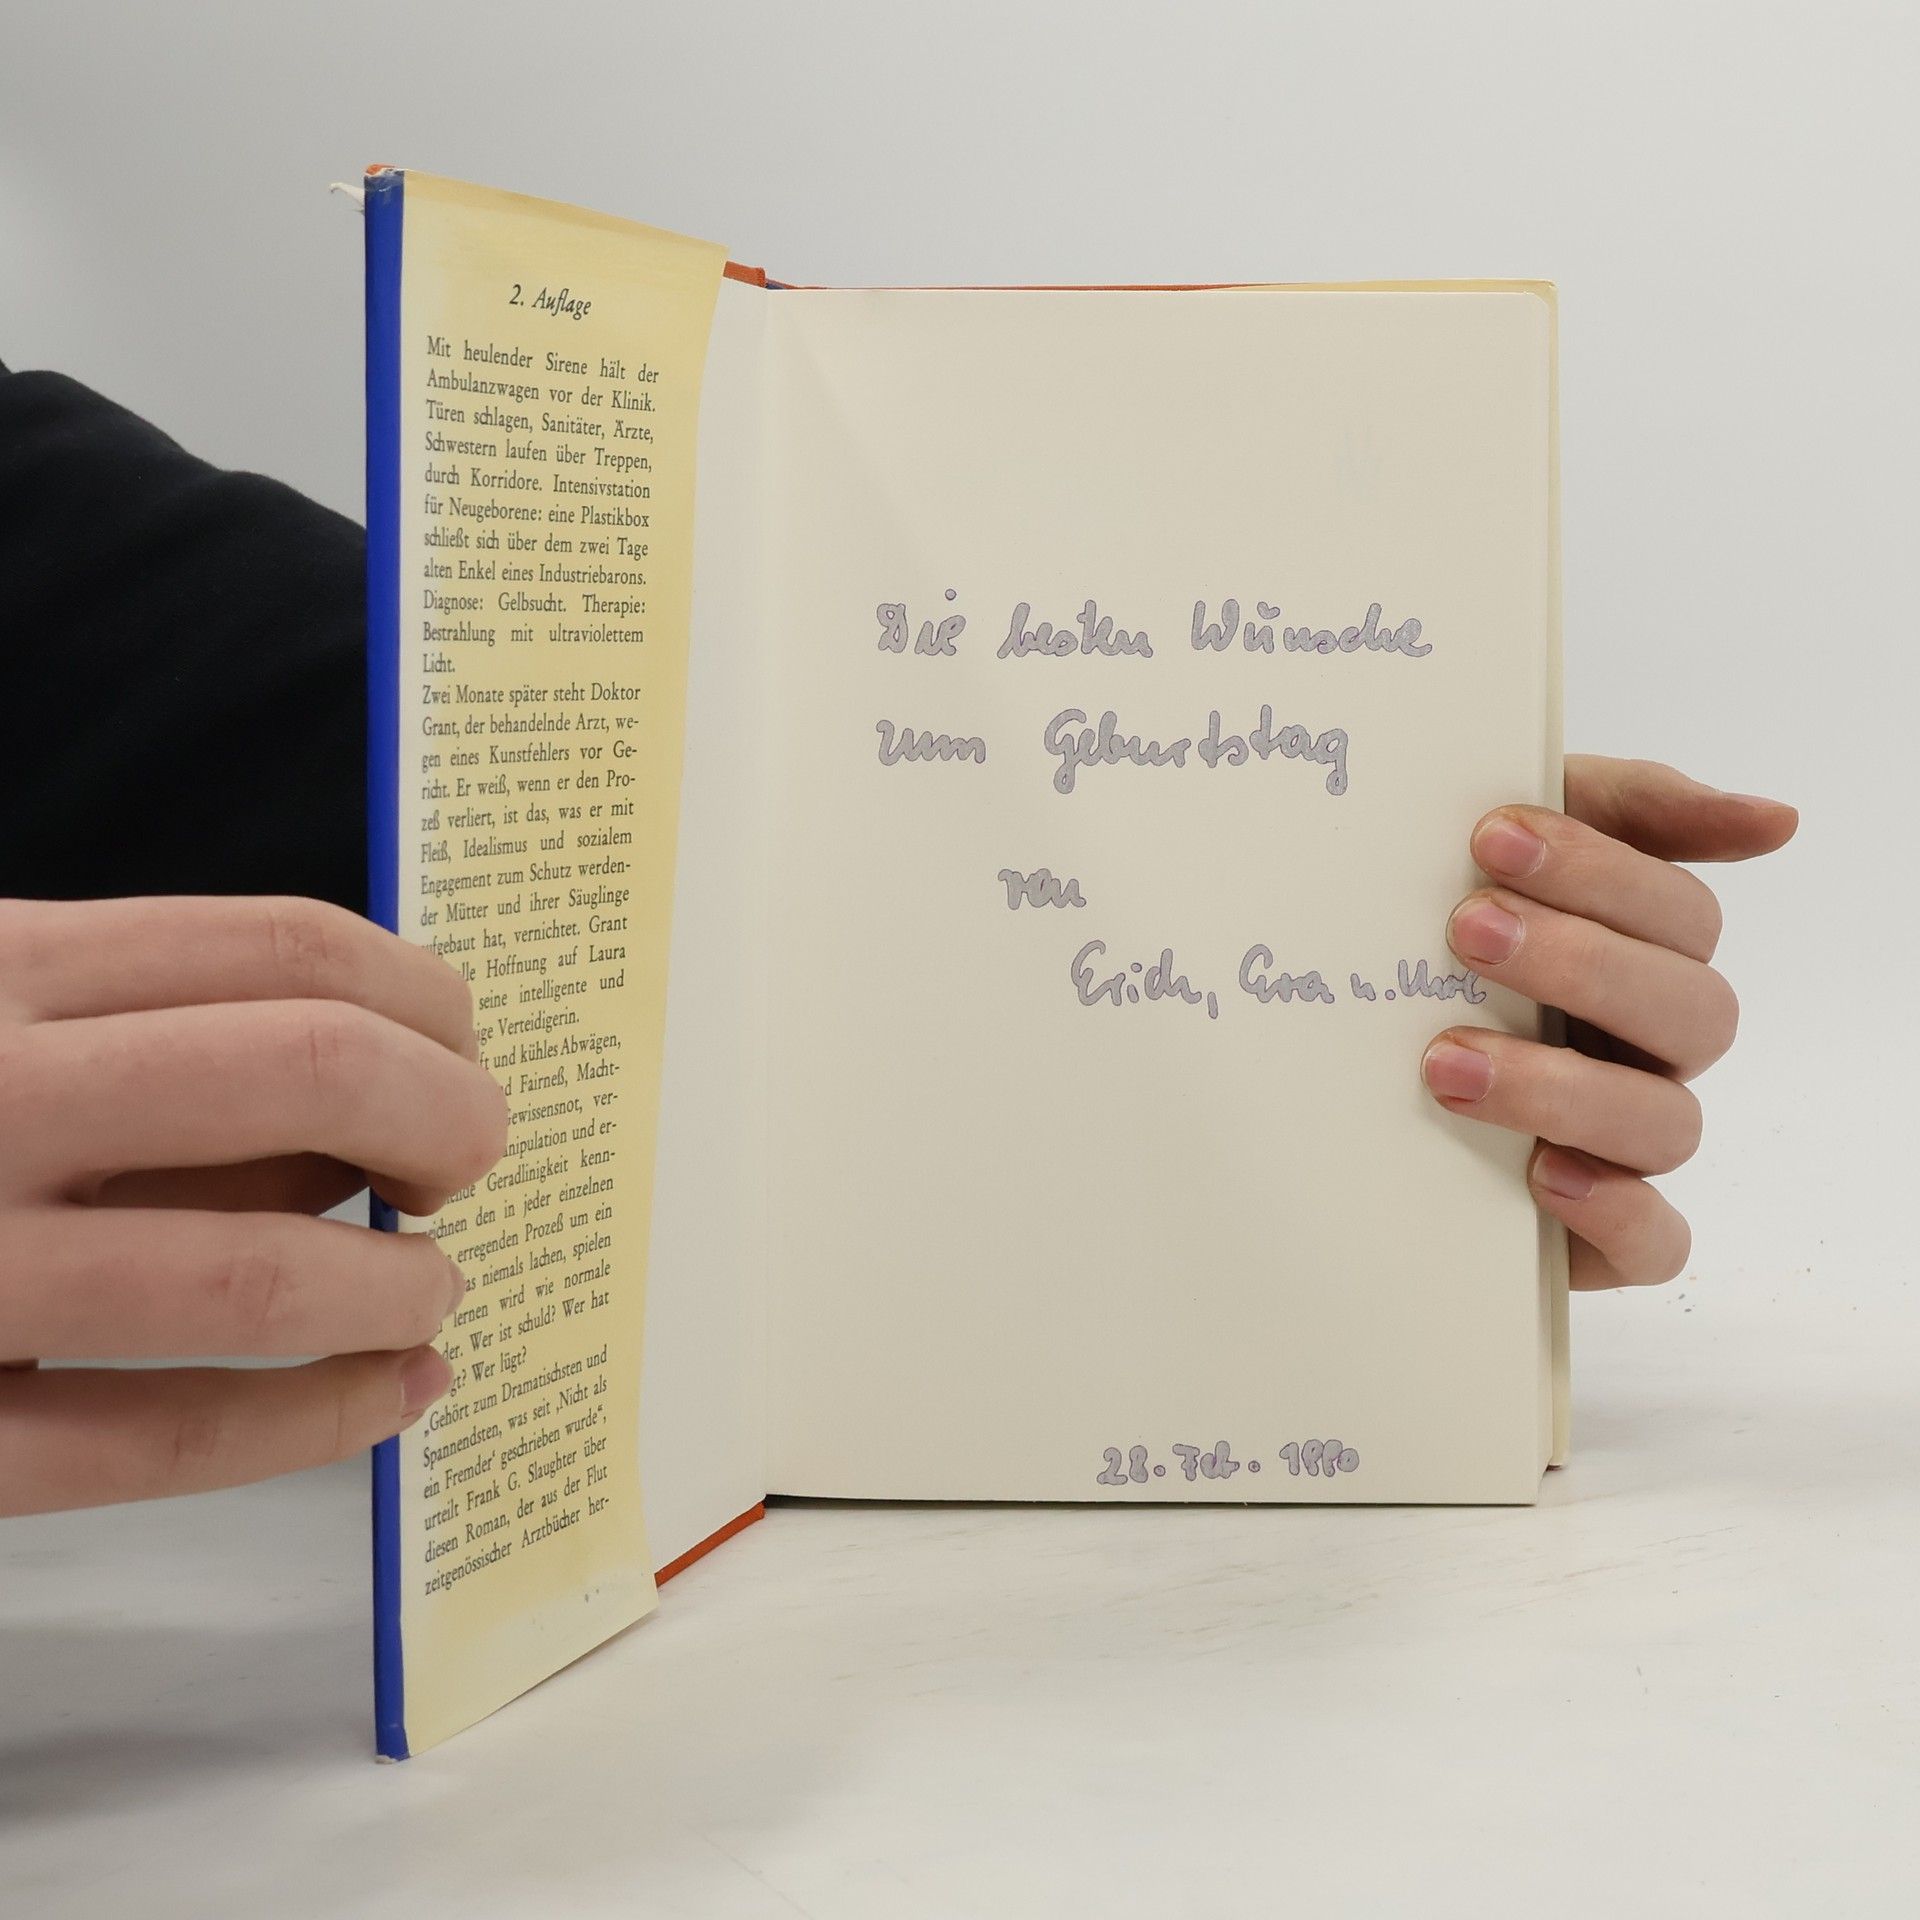 2. Auflage
Mit heulender Sirene hält der
Ambulanzwagen vor der Klinik.
Türen schlagen, Sanitäter, Ärzte,
Schwestern laufen über Treppen,
durch Korridore. Intensivstation
für Neugeborene: eine Plastikbox
schließt sich über dem zwei Tage
alten Enkel eines Industriebarons.
Diagnose: Gelbsucht. Therapie:
Bestrahlung mit ultraviolettem
Licht.
Zwei Monate später steht Doktor
Grant, der behandelnde Arzt, we-
gen eines Kunstfehlers vor Ge-
richt. Er weiß, wenn er den Pro-
zeß verliert, ist das, was er mit
Fleiß, Idealismus und sozialem
Engagement zum Schutz werden-
der Mütter und ihrer Säuglinge
aufgebaut hat, vernichtet. Grant
Hoffnung auf Laura
seine intelligente und
Verteidigerin.
und kühles Abwägen,
Fairneß, Macht-
Gewissensnot, ver-
und er-
Geradlinigkeit kenn-
zeichnen den in jeder einzelnen
erregenden Prozeß um ein
niemals lachen, spielen
lernen wird wie normale
Wer ist schuld? Wer hat
Wer lügt?
„Gehört zum Dramatischsten und
Spannendsten, was seit ‚Nicht als
ein Fremder‘ geschrieben wurde“,
urteilt Frank G. Slaughter über
diesen Roman, der aus der Flut
zeitgenössischer Arztbücher her-
Die besten Wünsche
zum Geburtstag
von
Erich, Eva u.
28. Feb. 1990